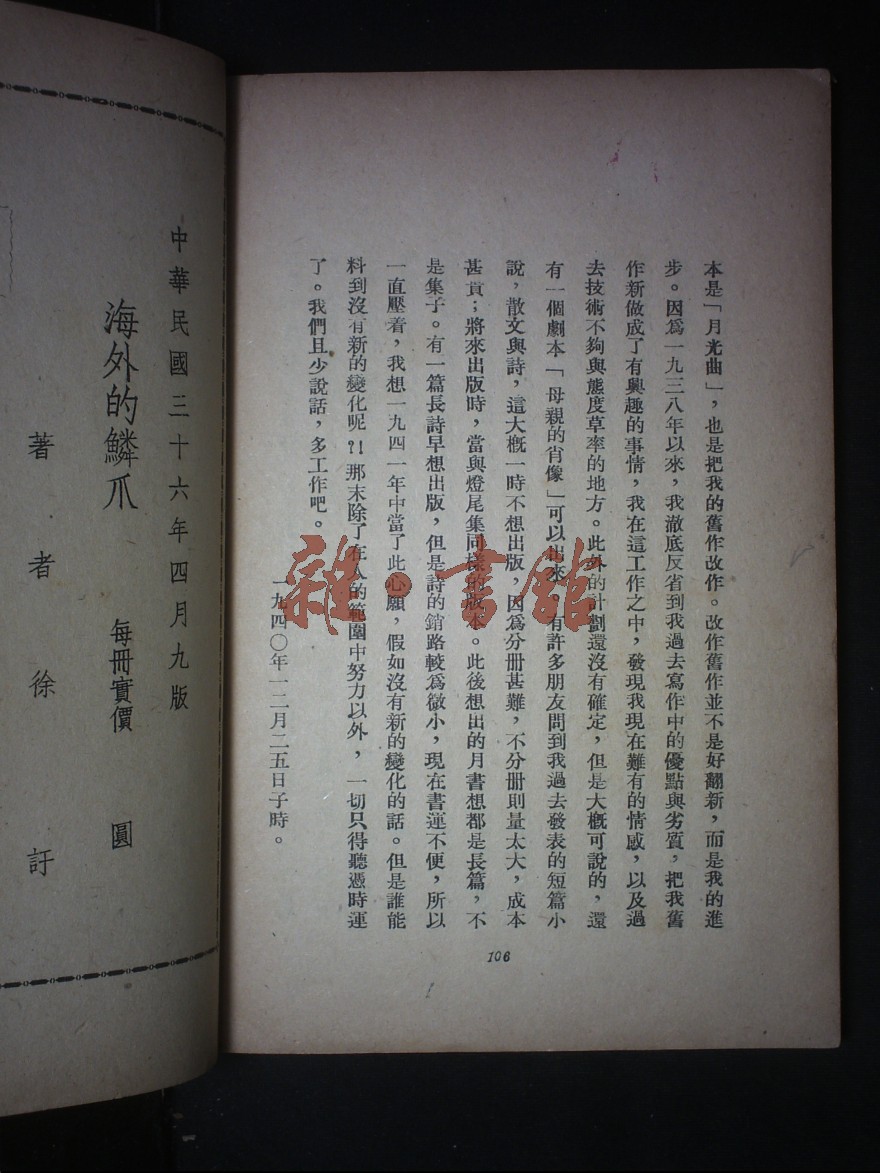 本是「月光曲」，也是把我的舊作改作。改作舊作並不是好翻新，而是我的進
步。因爲一九三八年以來，我澈底反省到我過去寫作中的優點與劣質，把我舊
作新做成了有興趣的事情，我在這工作之中，發現我現在難有的情感，以及過
去技術不夠與態度草率的地方。此外的計劃還沒有確定，但是大槪可說的，還
有一個劇本「母親的肖像」可以出來。有許多朋友問到我過去發表的短篇小
說，散文與詩，這大槪一時不想出版，因爲分册甚難，不分册則量太大，成本
甚貴；將來出版時，當與燈尾集同樣的版本。此後想出的月書想都是長篇，不
是集子。有一篇長詩早想出版，但是詩的銷路較爲微小，現在書運不便，所以
一直壓着，我想一九四一年中當了此心願，假如沒有新的變化的話。但是誰能
料到沒有新的變化呢?!那末除了在人的範圍中努力以外，一切只得聽憑時運
了。我們且少說話，多工作吧。
一九四〇年一二月二五日子時。
106
中華民國三十六年四月九版
海外的鱗爪 每冊實價 圓
著者 徐訏
雜·書館